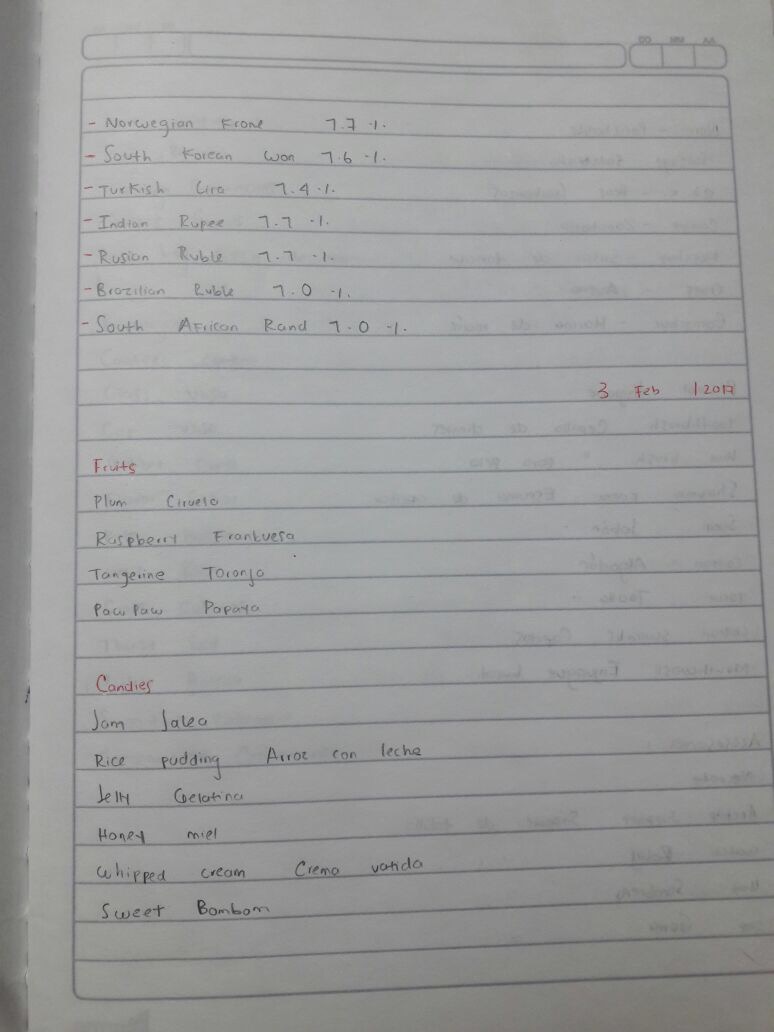 - Norwegian Krone 7.7 %.
- South Korean Won 7.6 %.
- Turkish Lira 7.4 %.
- Indian Rupee 7.7 %.
- Rusian Ruble 7.7 %.
- Brazilian Ruble 7.0 %.
- South African Rand 7.0 %.
3 Feb / 2017
Fruits
Plum Ciruela
Raspberry Frambuesa
Tangerine Toronja
Paw Paw Papaya
Candies
Jam Jalea
Rice pudding Arroz con leche
Jelly Gelatina
Honey miel
Whipped cream Crema vatida
Sweet Bombom